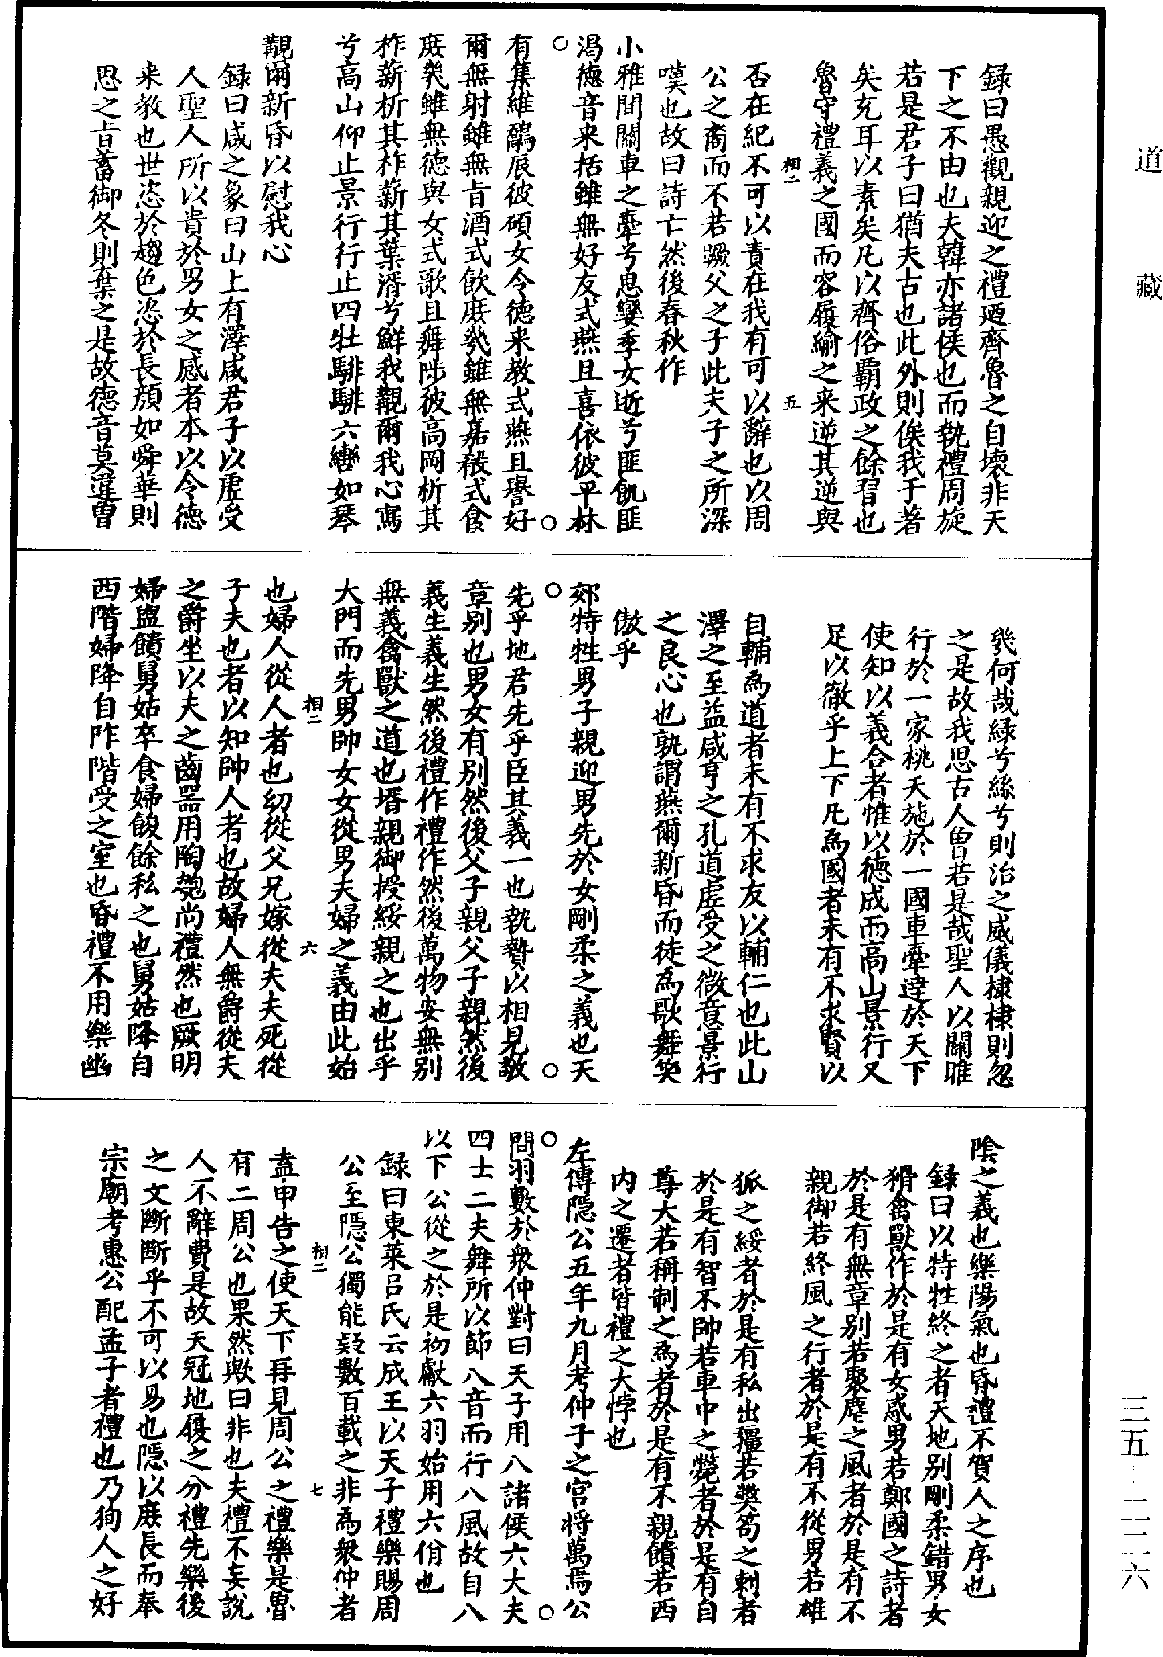 道藏
三五‧二二六
錄曰愚觀親迎之禮廼齊魯之自壞非天
下之不由也夫韓亦諸侯也而執禮周旋
若是君子曰猶夫古也此外則俟我于著
矣充耳以素矣凡以齊俗霸政之餘習也
魯守禮義之國而容履緰之来逆其逆與
相二 五
否在紀不可以責在我有可以辭也以周
公之裔而不若蹶父之子此夫子之所深
嘆也故曰詩亡然後春秋作
小雅間關車之舝兮思孌季女逝兮匪飢匪
渴德音来括雖無好友式燕且喜依彼平林
○ ○
有集維鷮辰彼碩女令德来教式燕且譽好
爾無射雖無旨酒式飲庶幾雖無嘉殽式食
庶幾雖無德與女式歌且舞陟彼高岡析其
柞薪析其柞薪其葉湑兮鮮我覯爾我心寫
兮高山仰止景行行止四牡騑騑六轡如琴
覯爾新昏以慰我心
錄曰咸之象曰山上有澤咸君子以虛受
人聖人所以貴於男女之感者本以令德
来教也世恣於趨色恣於長顏如舜華則
思之旨蓄御冬則棄之是故德音莫違曾
幾何哉綠兮絲兮則治之威儀棣棣則忽
之是故我思古人曾若是哉聖人以關雎
行於一家桃夭施於一國車舝達於天下
使知以義合者惟以德成而高山景行又
足以徹乎上下凡為國者未有不求賢以
自輔為道者未有不求友以輔仁也此山
澤之至益咸亨之孔道虛受之微意景行
之良心也孰謂燕爾新昏而徒為歌舞笑
傲乎
郊特牲男子親迎男先於女剛柔之義也天
○ ○
先乎地君先乎臣其義一也執贄以相見敬
章別也男女有別然後父子親父子親然後
義生義生然後禮作禮作然後萬物安無別
無義禽獸之道也壻親御授綏親之也出乎
大門而先男帥女女從男夫婦之義由此始
相二 六
也婦人從人者也幼從父兄嫁從夫夫死從
子夫也者以知帥人者也故婦人無爵從夫
之爵坐以夫之齒器用陶匏尚禮然也厥明
婦盥饋舅姑卒食婦餕餘私之也舅姑降自
西階婦降自阼階受之室也昏禮不用樂幽
陰之義也樂陽氣也昏禮不賀人之序也
錄曰以特牲終之者天地別剛柔錯男女
猾禽獸作於是有女惑男若鄭國之詩者
於是有無章別若聚麀之風者於是有不
親御若終風之行者於是有不從男若雄
狐之綏者於是有私出疆若獘笱之刺者
於是有智不帥若車中之斃者於是有自
尊大若稱制之為者於是有不親饋若西
內之遷者皆禮之大悖也
左傳隱公五年九月考仲子之宮将萬焉公
○ ○
問羽數於衆仲對曰天子用八諸侯六大夫
四士二夫舞所以節八音而行八風故自八
以下公從之於是初獻六羽始用六佾也
錄曰東萊呂氏云成王以天子禮樂賜周
公至隱公獨能疑數百載之非為衆仲者
相二 七
盍申告之使天下再見周公之禮樂是魯
有二周公也果然歟曰非也夫禮不妄說
人不辭費是故天冠地履之分禮先樂後
之文斷斷乎不可以易也隱以庶長而奉
宗廟考惠公配孟子者禮也乃狥人之好